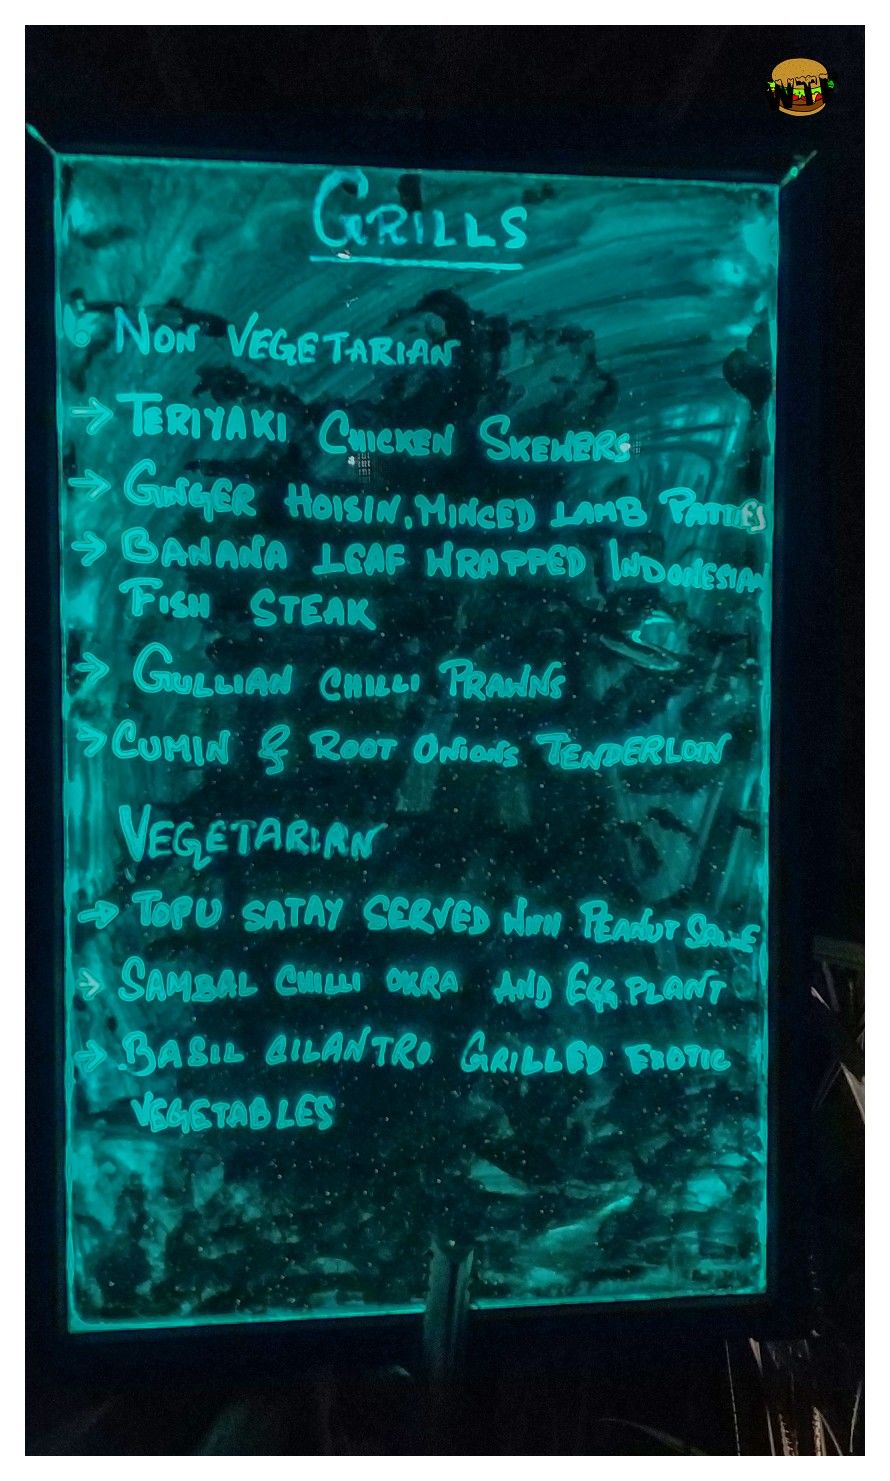 GRILLS
NON VEGETARIAN
→ TERIYAKI CHICKEN SKEWERS
→ GINGER HOISIN, MINCED LAMB PATTIES
→ BANANA LEAF WRAPPED INDONESIAN
FISH STEAK
→ GULLIAN CHILLI PRAWNS
→ CUMIN & ROOT ONIONS TENDERLOIN
VEGETARIAN
→ TOFU SATAY SERVED WITH PEANUT SAUCE
→ SAMBAL CHILLI OKRA AND EGG PLANT
→ BASIL CILANTRO GRILLED EXOTIC
VEGETABLES